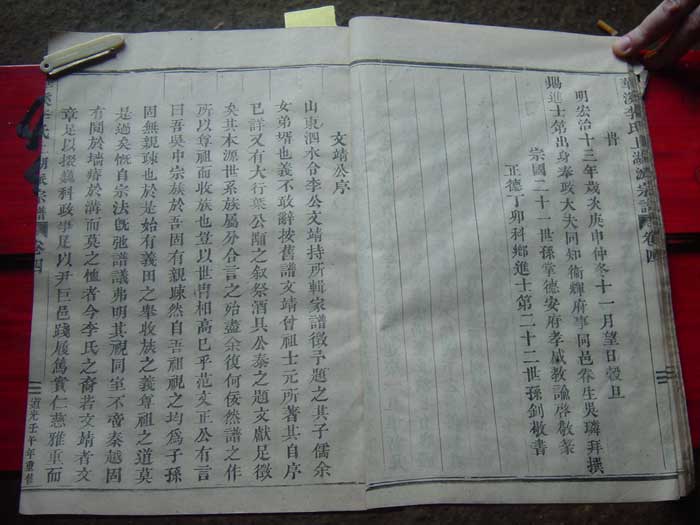 華溪李氏上湖派宗譜 卷四
旹
明宏治十三年歲次庚申仲冬十一月望日穀旦
賜進士第出身奉政大夫同知衛輝府事同邑眷生吳璘拜撰
宗國二十一世孫掌德安府孝感教諭啓敬篆
正德丁卯科鄉進士第二十二世孫釗敬書
文靖公序
山東泗水合李公文靖持所輯家譜徵予題之其子儒余
女弟壻也義不敢辭按舊譜文靖曾祖士元所著其自序
已詳又有大行葉公顒之叙祭酒具公泰之題文獻足徵
矣其本源世系族屬分合言之殆盡余復何佞然譜之作
所以尊祖而收族也豈以世冑相高已乎范文正公有言
曰吾吳中宗族於吾固有親踈然自吾祖視之均為子孫
固無親踈也於是始有義田之舉收族之義尊祖之道莫
是過矣慨自宗法旣弛譜議弗明其視同室不啻秦越固
有鬩於墻瘠於溝而莫之恤者今李氏之裔若文靖者文
章足以掇巍科政事足以尹巨邑踐履篤實仁慈雅重而
李氏 湖派宗譜 卷四 道光壬午年重修